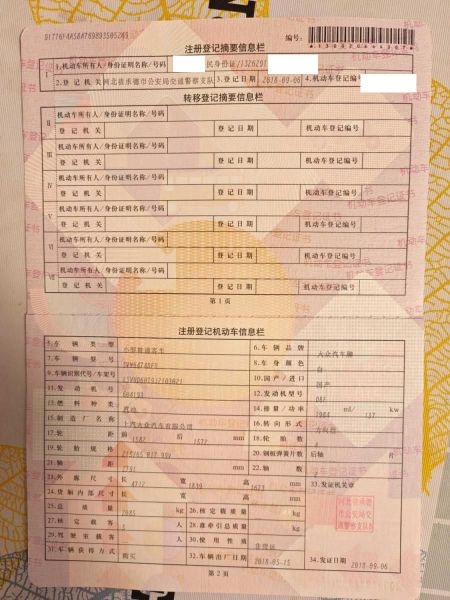 注册登记摘要信息栏
编号:
I
1.机动车所有人/身份证明名称/号码
民身份证/
2.登记机关 河北省承德市公安局交通警察支队 3.登记日期 2018-09-06 4.机动车登记编号
转移登记摘要信息栏
II 机动车所有人/身份证明名称/号码
登记机关 登记日期 机动车登记编号
III 机动车所有人/身份证明名称/号码
登记机关 登记日期 机动车登记编号
IV 机动车所有人/身份证明名称/号码
登记机关 登记日期 机动车登记编号
V 机动车所有人/身份证明名称/号码
登记机关 登记日期 机动车登记编号
VI 机动车所有人/身份证明名称/号码
登记机关 登记日期 机动车登记编号
VII 机动车所有人/身份证明名称/号码
登记机关 登记日期 机动车登记编号
第1页
注册登记机动车信息栏
5.车辆类型 小型普通客车 6.车辆品牌 大众汽车牌
7.车辆型号 8.车身颜色 白
9.车辆识别代号/车架号 10.国产/进口 国产
11.发动机号 12.发动机型号
13.燃料种类 汽油 14.排量/功率 1984 ml/ 137 kw
15.制造厂名称 上汽大众汽车有限公司 16.转向形式 方向盘
17.轮距 前 1587 后 1572 mm 18.轮胎数
19.轮胎规格 215/65 R17 99V 20.钢板弹簧片数 后轴 片
21.轴距 2791 mm 22.轴数 2
23.外廓尺寸 长 4712 宽 1839 高 1673 mm 33.发证机关章
24.货厢内部尺寸 长 宽 高 mm
25.总质量 kg 26.核定载质量 kg
27.核定载客 人 28.准牵引总质量 kg
29.驾驶室载客 人 30.使用性质 非营运
31.车辆获得方式 购买 32.车辆出厂日期 2018-05-15 34.发证日期 2018-09-06
河北省承德
市公安局交
通警察支队
第2页